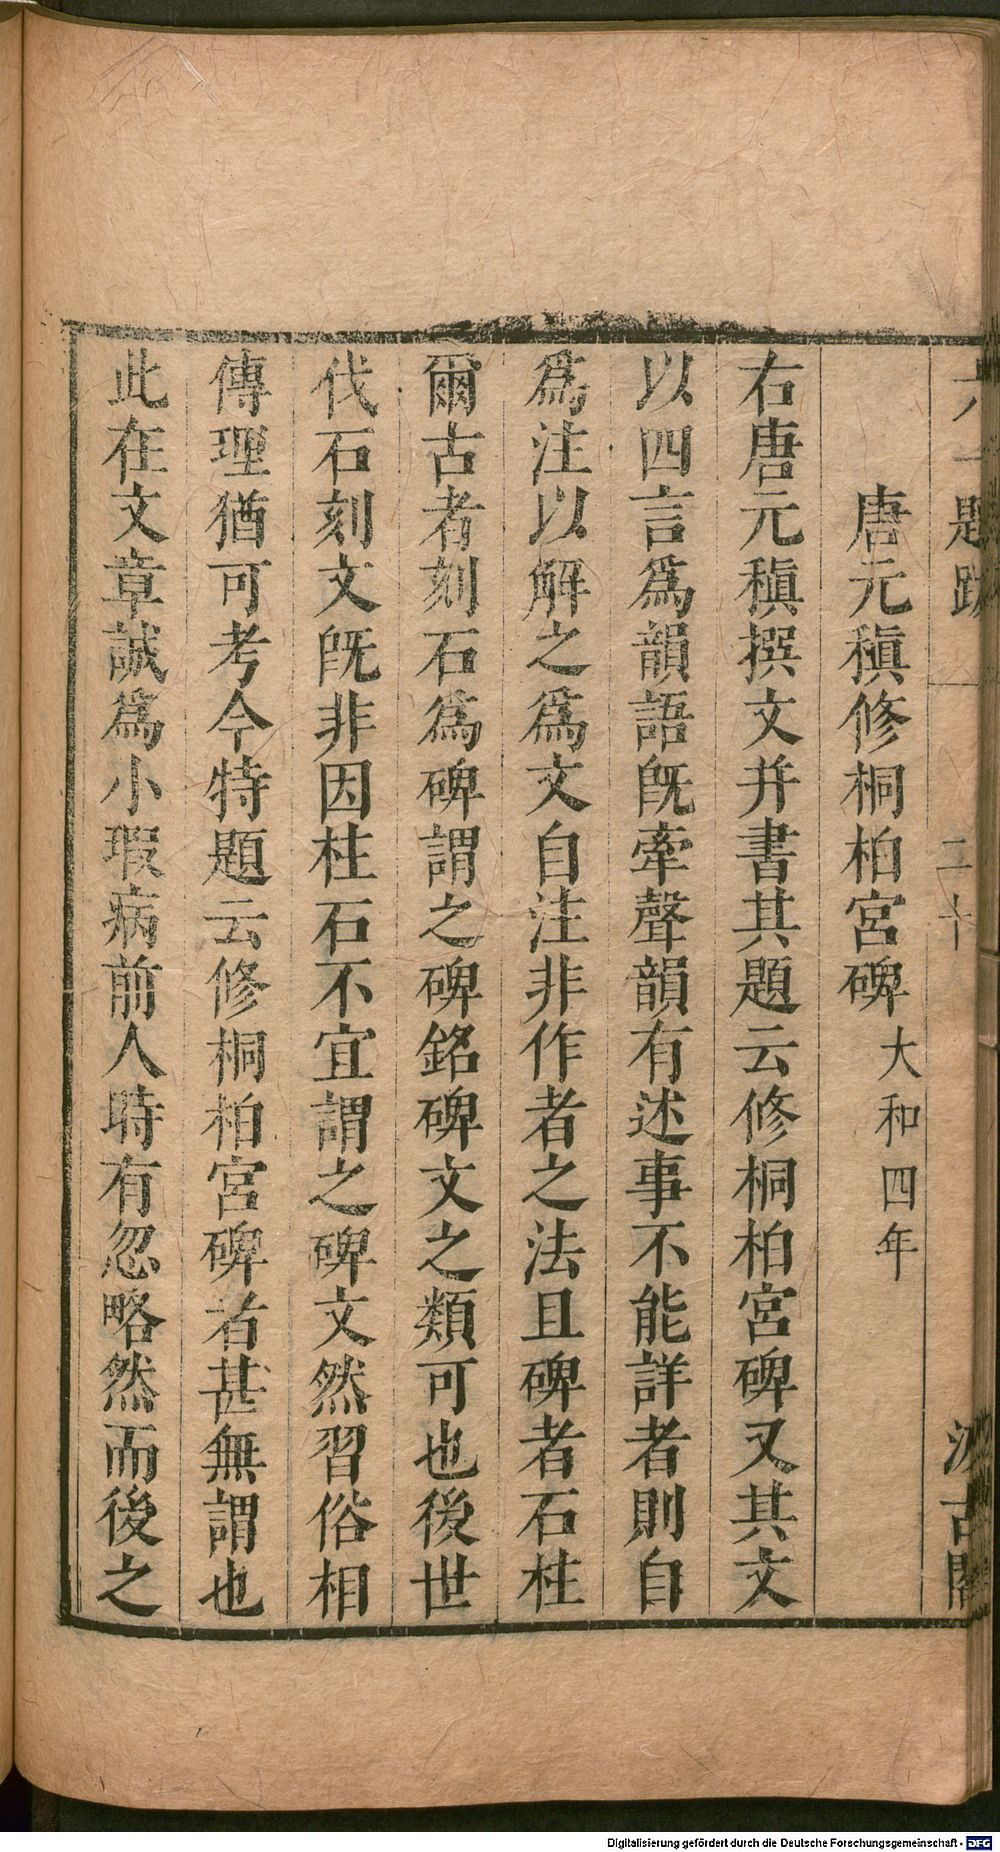 六一題跋 二十 汲古閣
唐元稹修桐柏宮碑大和四年
右唐元稹撰文并書其題云修桐柏宮碑又其文
以四言爲韻語旣牽聲韻有述事不能詳者則自
爲注以解之爲文自注非作者之法且碑者石柱
爾古者刻石爲碑謂之碑銘碑文之類可也後世
伐石刻文旣非因柱石不宜謂之碑文然習俗相
傳理猶可考今特題云修桐柏宮碑者甚無謂也
此在文章誠爲小瑕病前人時有忽略然而後之
Digitalisierung gefördert durch die Deutsche Forschungsgemeinschaft - DFG